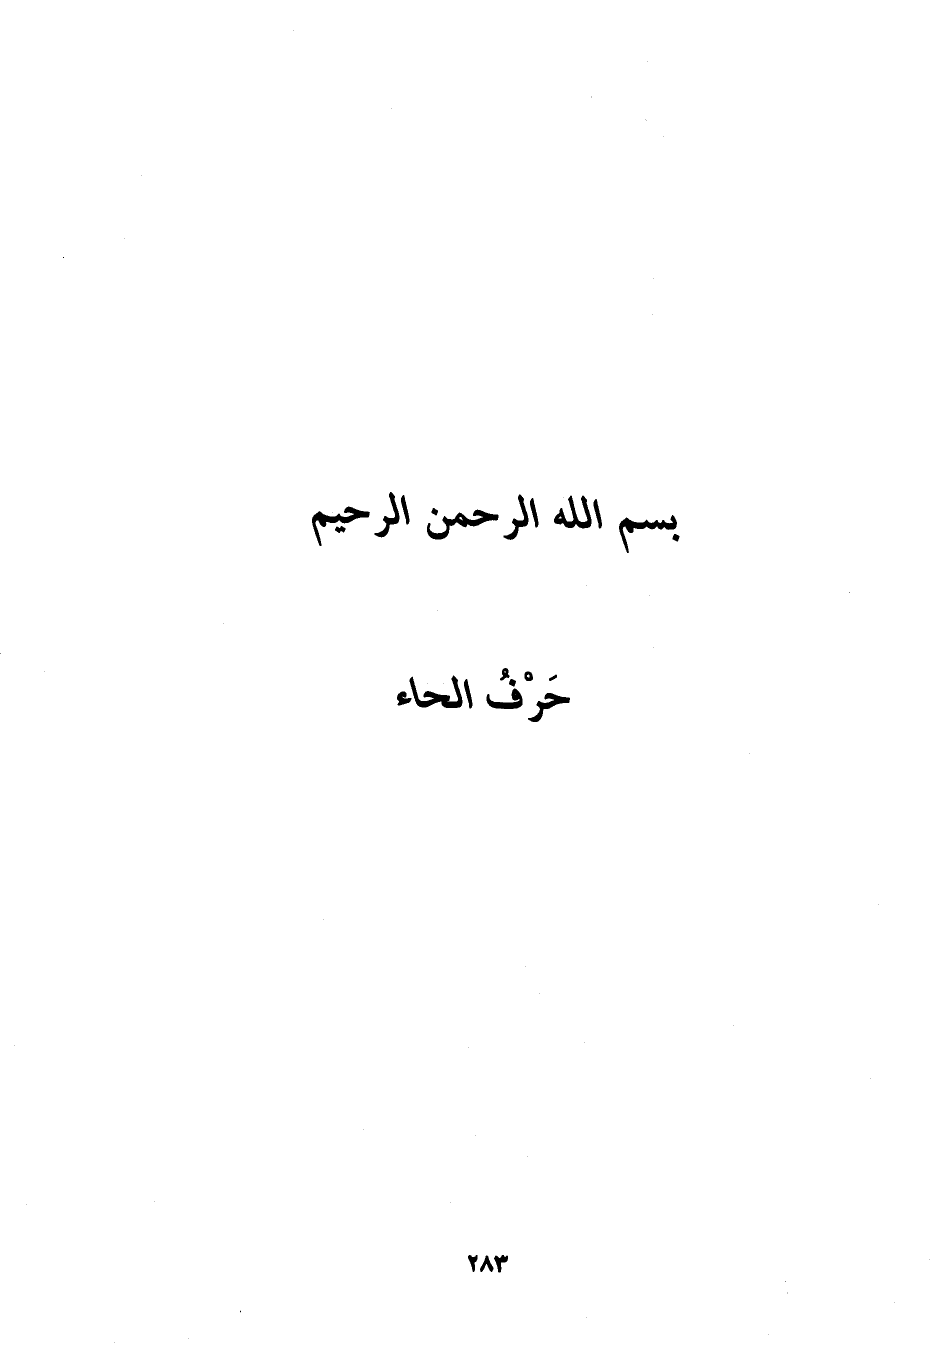 بسم الله الرحمن الرحيم
حَرْفُ الحاء
٢٨٣